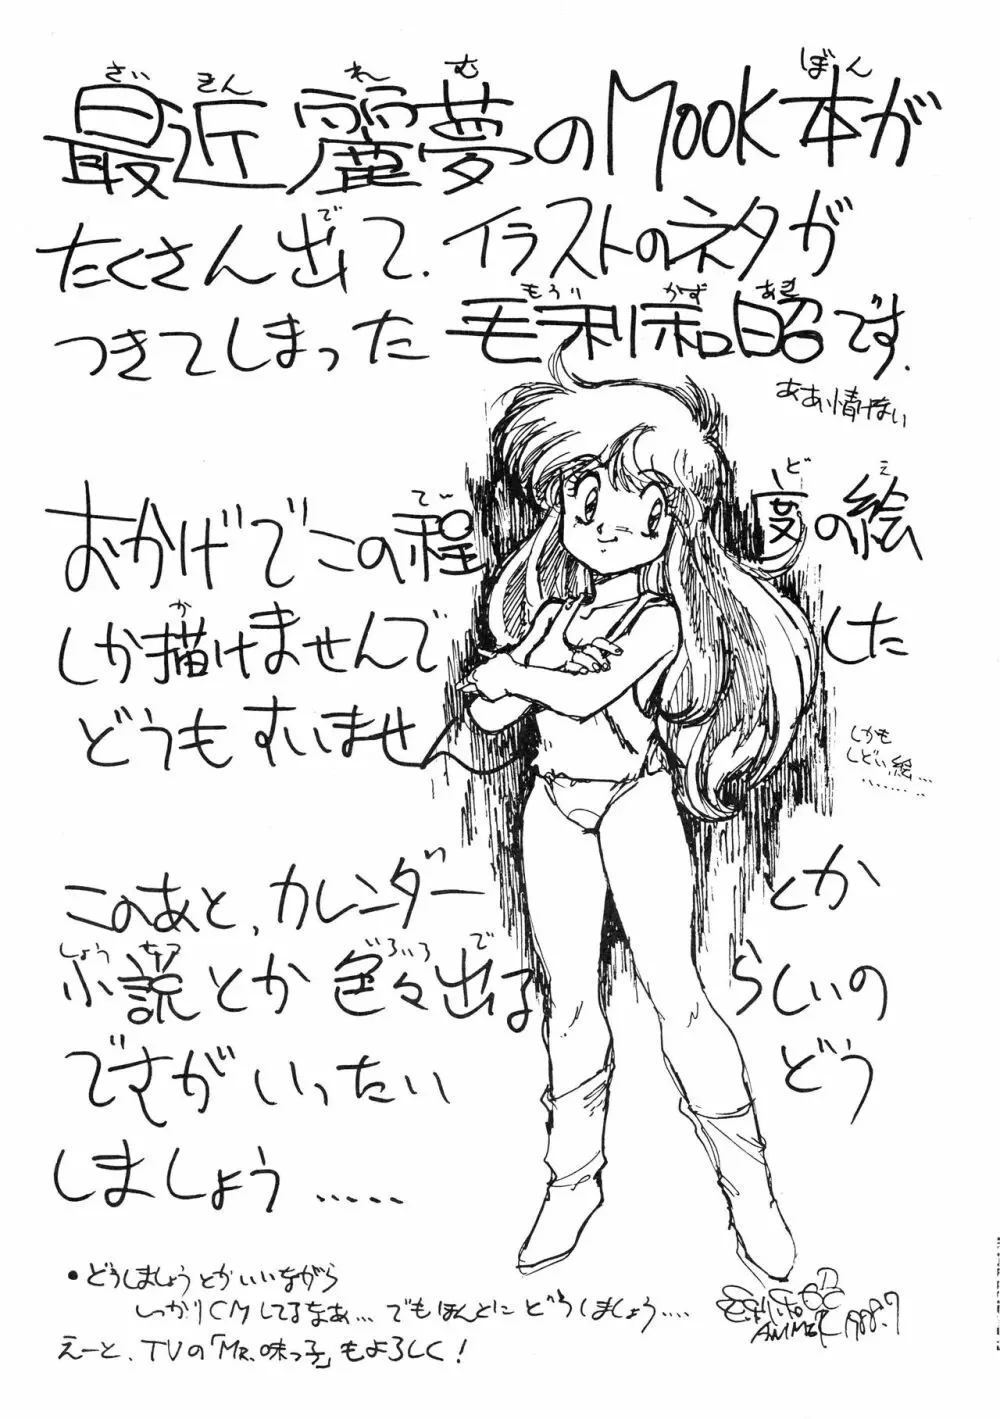 最近麗夢のMOOK本が
たくさん出て、イラストのネタが
つきてしまった毛利和昭です.
ああい情けない
おかげでこの程度の絵
しか描けませんでした
どうもすいませ
しかも
しどい絵...
このあと、カレンダーとか
小説とか色々出るらしいの
ですがいったいどう
しましょう.....
・どうしましょうとかいいながら
しっかりCMしてるなあ...でもほんとにどうしましょう....
えーと、TVの「MR.味っ子」もよろしく!
1988.7